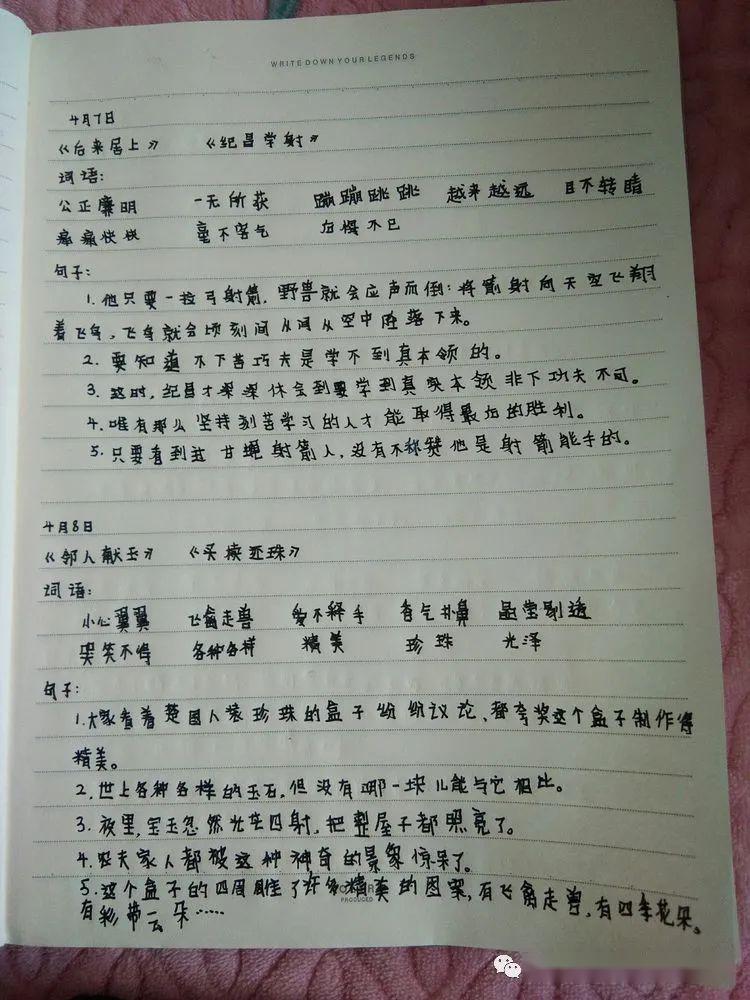 WRITE DOWN YOUR LEGENDS
4月7日
《后来居上》 《纪昌学射》
词语:
公正廉明 一无所获 蹦蹦跳跳 越来越远 目不转睛
痛痛快快 毫不客气 后悔不已
句子:
1.他只要一拉弓射箭,野兽就会应声而倒;将箭射向天空飞翔
着飞鸟,飞鸟就会顷刻间从间从空中陨落下来。
2.要知道不下苦巧夫是学不到真本领的。
3.这时,纪昌才深深体会到要学到真实本领非下功夫不可。
4.唯有那么坚持刻苦学习的人才能取得最后的胜利。
5.只要看到过甘蝇射箭人,没有不称赞他是射箭能手的。
4月8日
《邻人献玉》 《买椟还珠》
词语:
小心翼翼 飞禽走兽 爱不释手 香气扑鼻 晶莹剔透
哭笑不得 各种各样 精美 珍珠 光泽
句子:
1.大家看着楚国人装珍珠的盒子纷纷议论,都夸奖这个盒子制作得
精美。
2.世上各种各样的玉石,但没有哪一块儿能与它相比。
3.夜里,宝玉忽然光芒四射,把整屋子都照亮了。
4.农夫家人都被这种神奇的景象惊呆了。
5.这个盒子的四周雕了许多精美的图案,有飞禽走兽,有四季花朵。
有彩带云朵……
PRODUCED